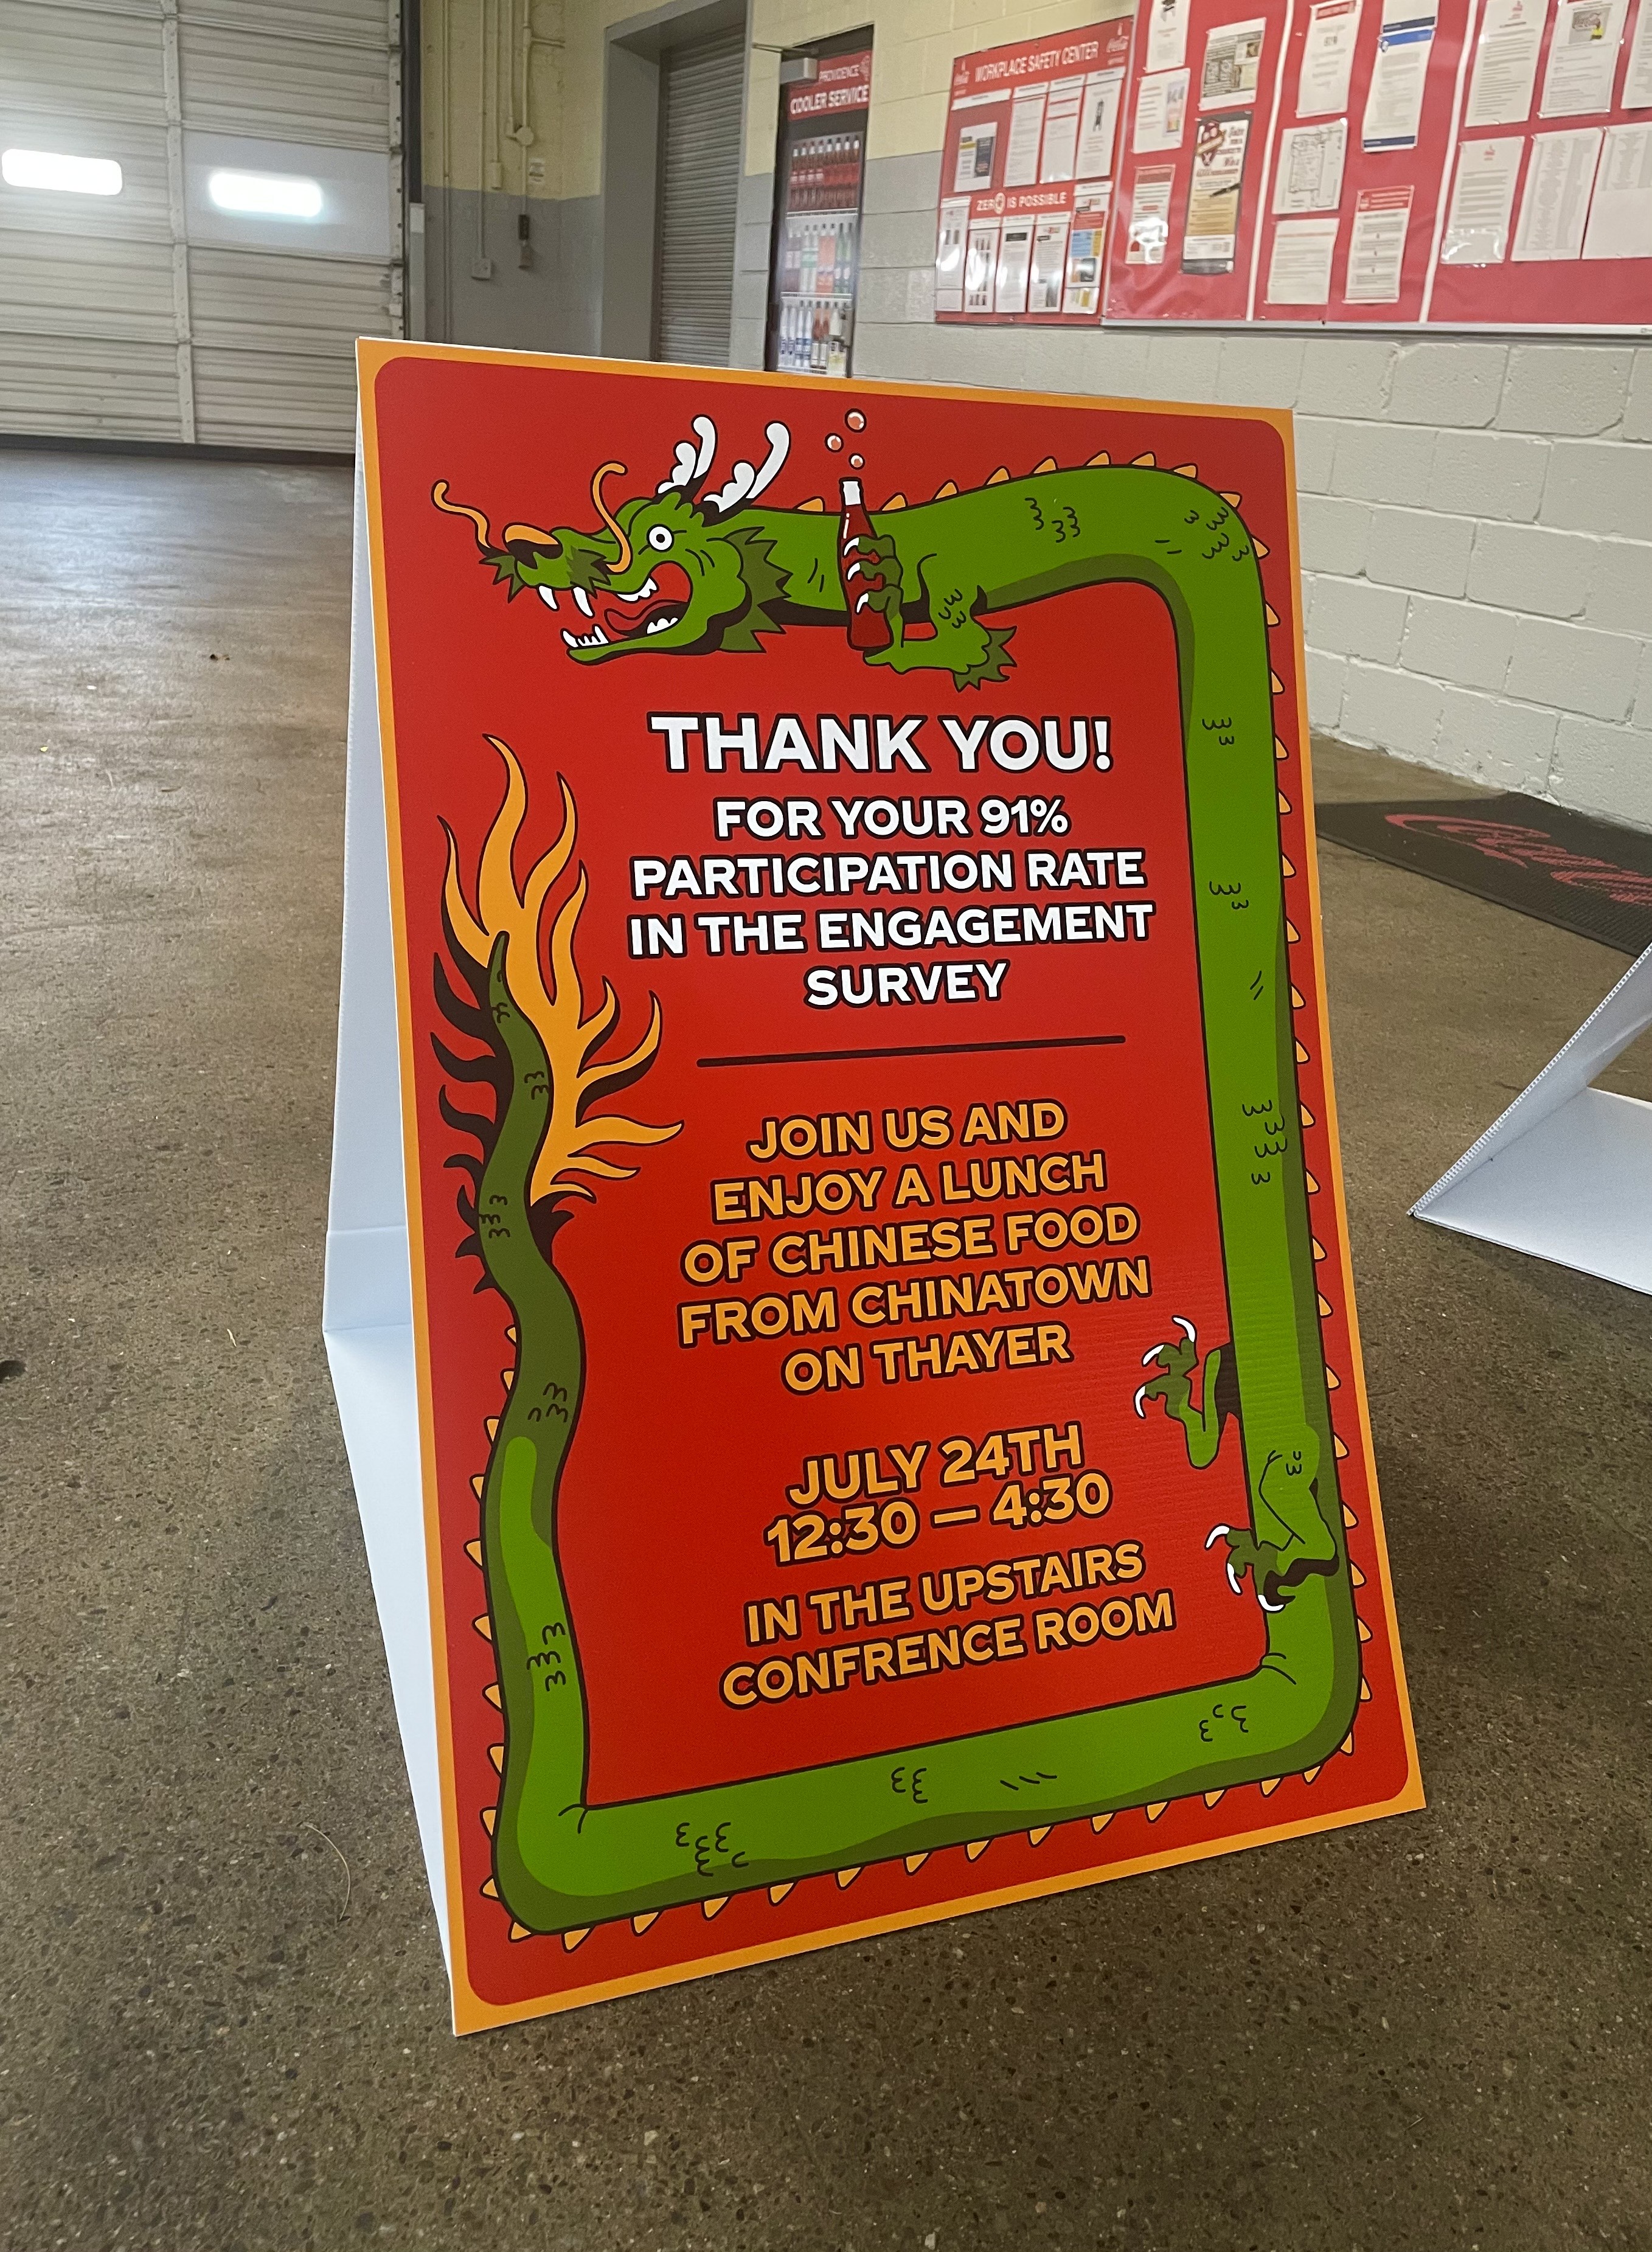 PROVIDENCE
COOLER SERVICE
Coca-Cola
WORKPLACE SAFETY CENTER
Coca-Cola
ZERO IS POSSIBLE
THANK YOU!
FOR YOUR 91%
PARTICIPATION RATE
IN THE ENGAGEMENT
SURVEY
JOIN US AND
ENJOY A LUNCH
OF CHINESE FOOD
FROM CHINATOWN
ON THAYER
JULY 24TH
12:30 — 4:30
IN THE UPSTAIRS
CONFRENCE ROOM